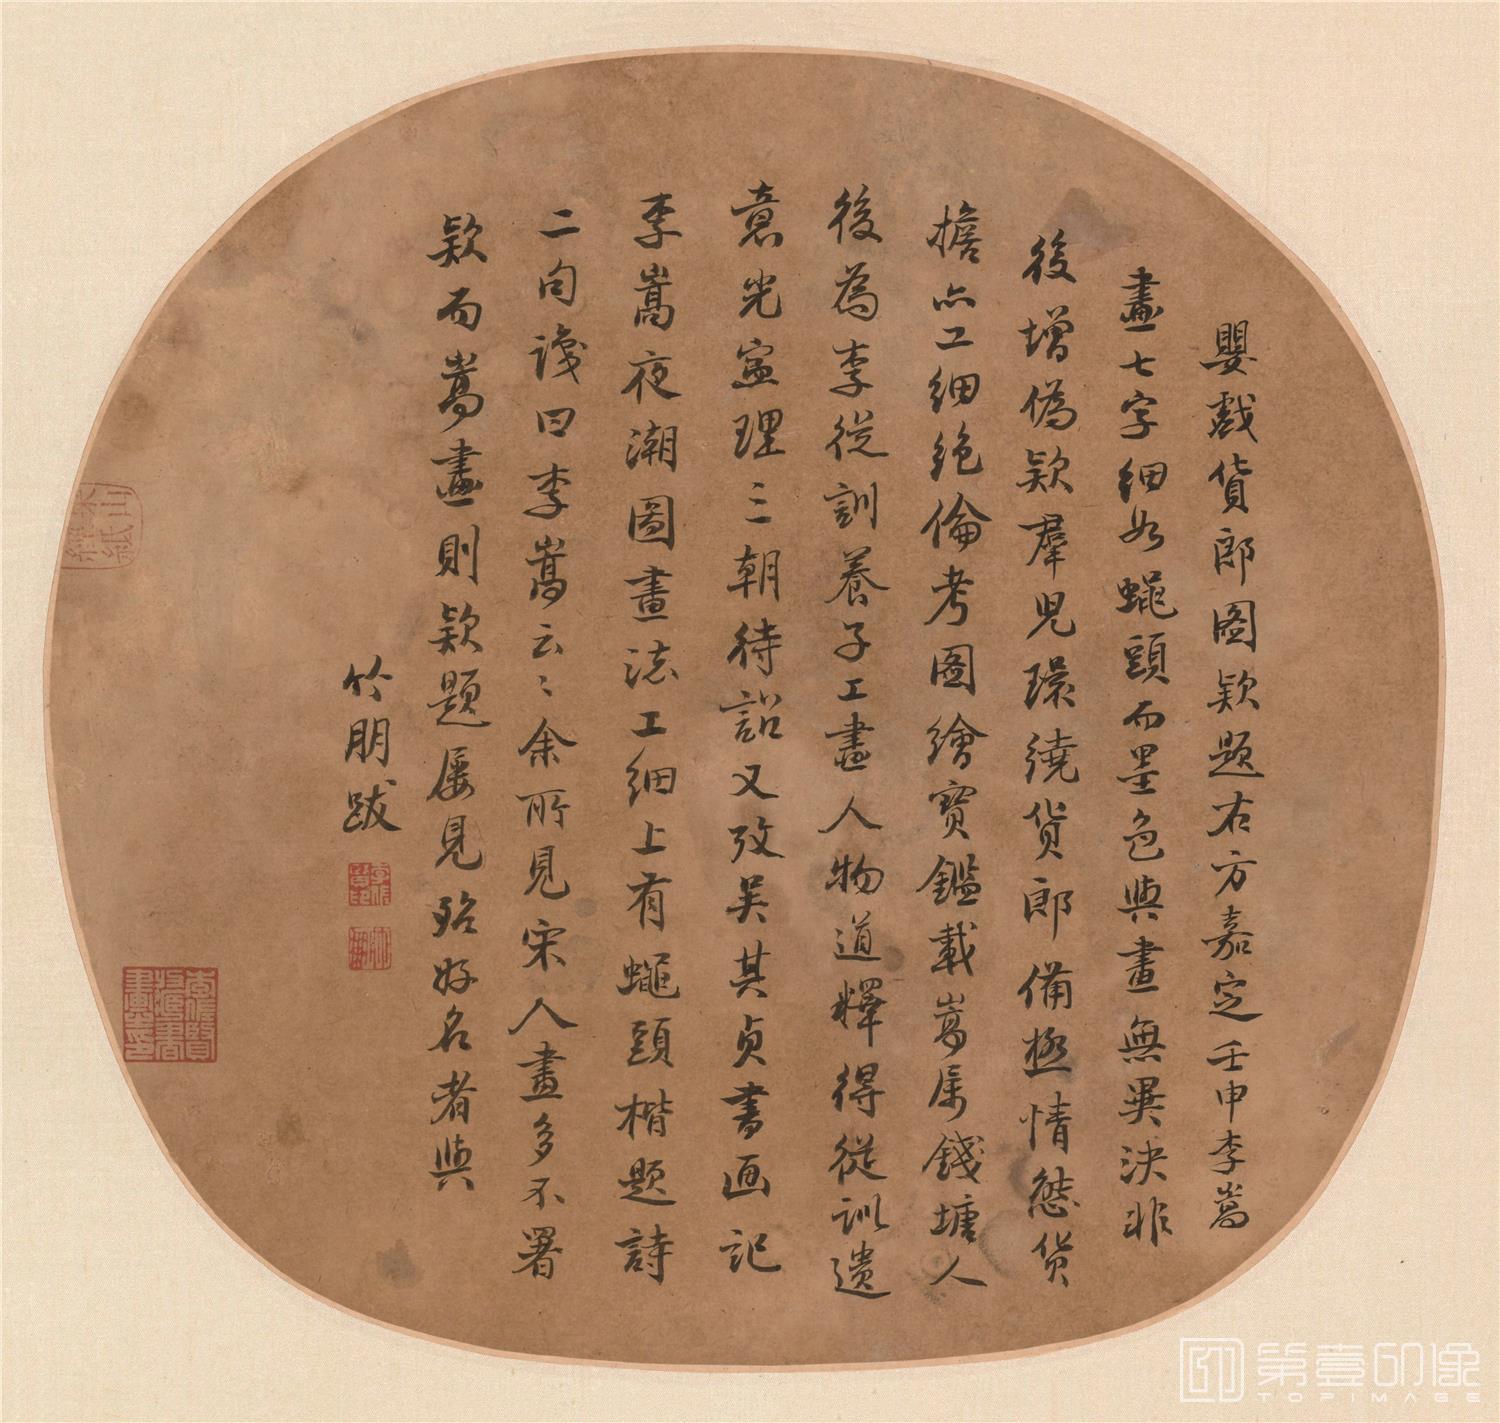 嬰戲貨郎图欵题右方嘉定壬申李嵩
畫七字細如蠅頭而墨色與畫無異決非
後增偽欵羣兒環繞貨郎備極情態貨
擔亦工細絶倫考图繪寳鑑載嵩属錢塘人
後為李從訓養子工畫人物道釋得從訓遺
意光寧理三朝待詔又攷吴其貞書画記
李嵩夜潮圖畫法工細上有蠅頭楷题詩
二句識曰李嵩云〻余所見宋人畫多不署
欵而嵩畫則欵题屡見殆好名者與
竹朋跋
李佐賢收藏書畫之印
第壹印像
TOPIMAGE